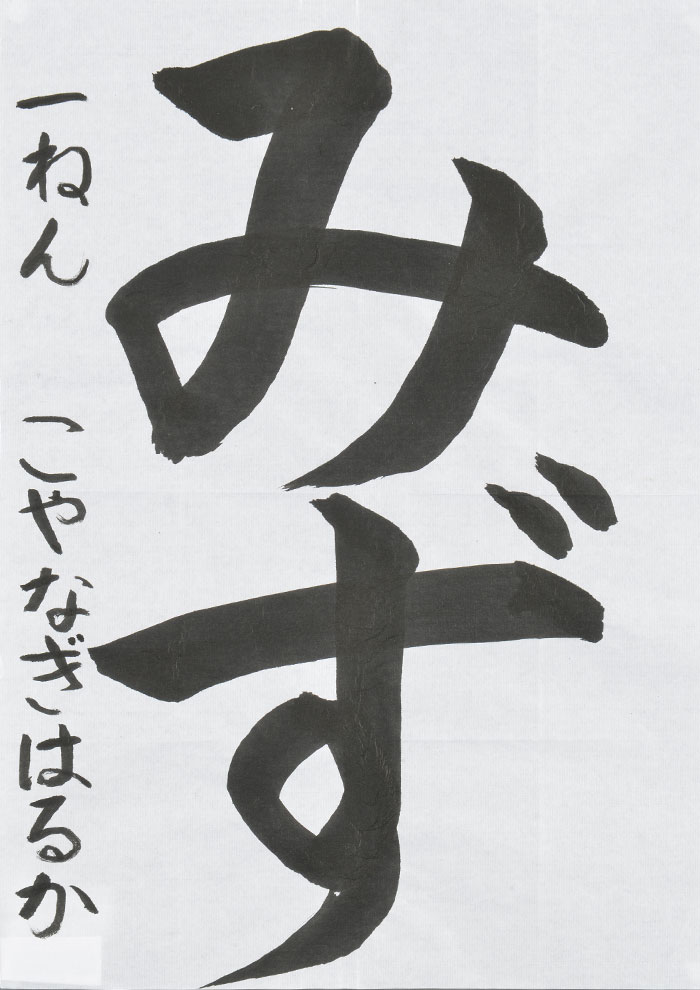 みず
一ねん こやなぎはるか